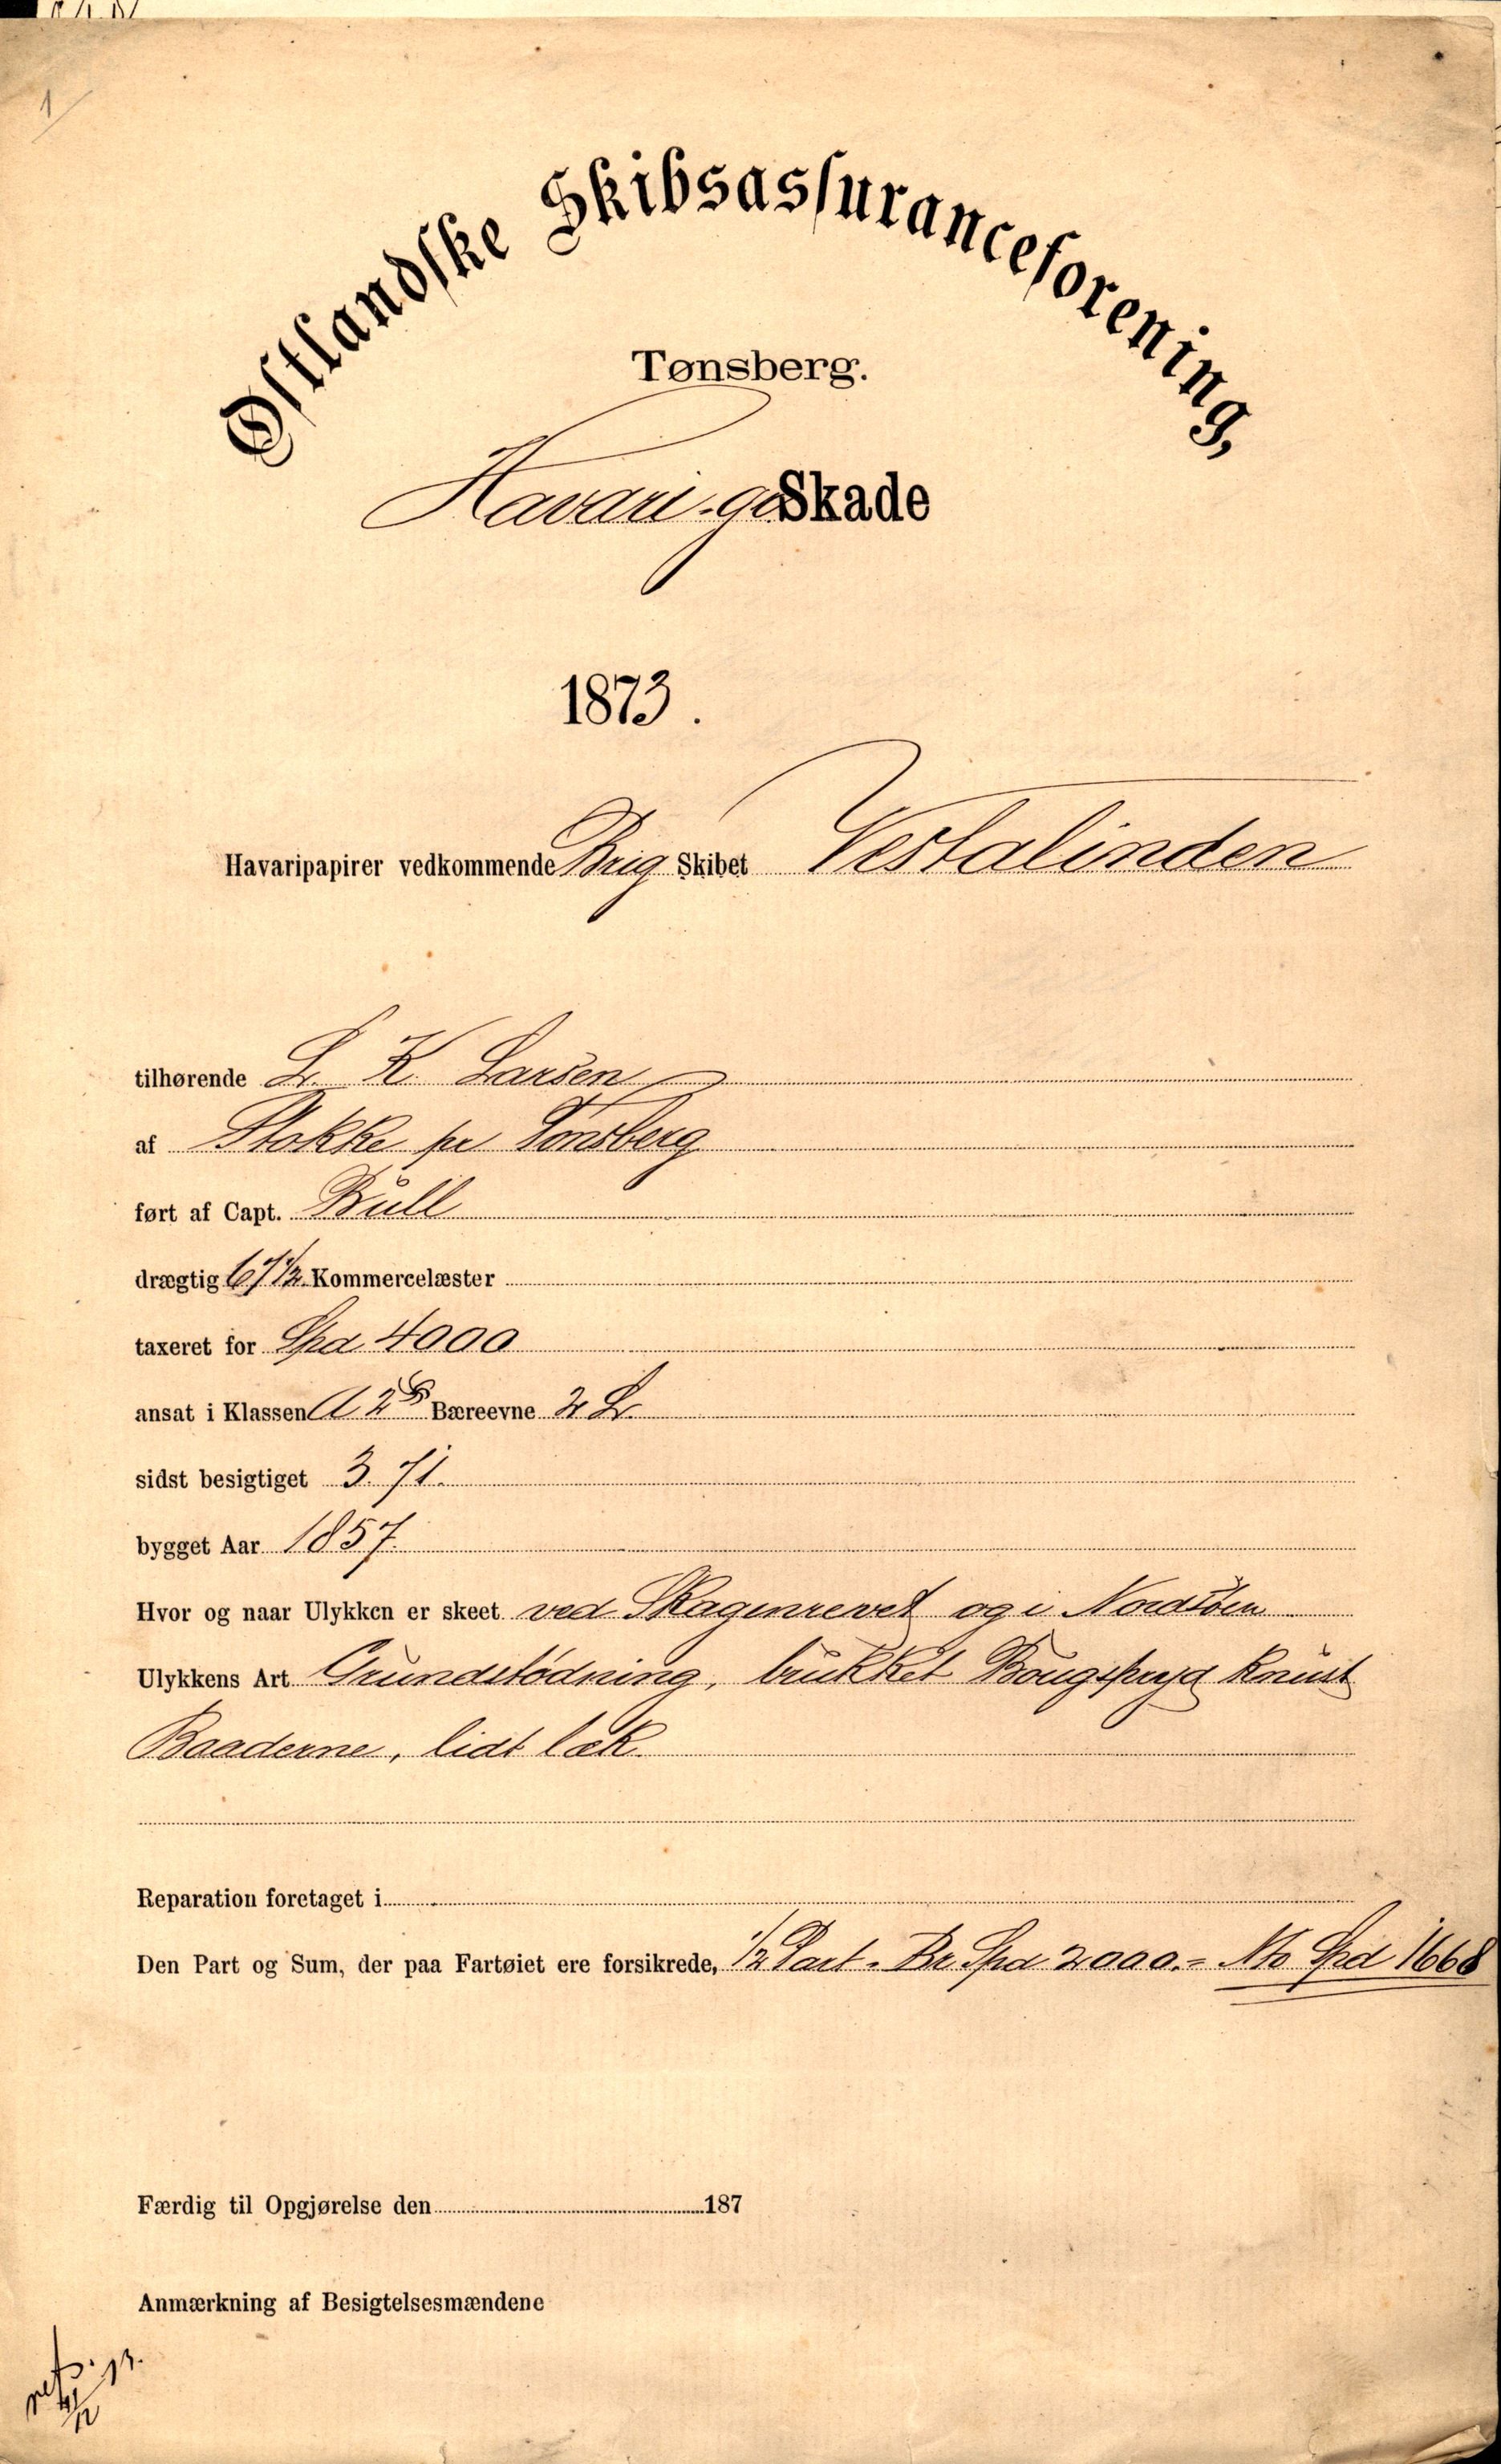 1
Østlandske Skibsassuranceforening,
Tønsberg.
Havari gr Skade
1873.
Havaripapirer vedkommende Brig Skibet Vestalinden
tilhørende L. K. Larsen
af Stokke pr Tønsberg
ført af Capt. Bull
drægtig 67 1/2 Kommercelæster
taxeret for Spd 4000
ansat i Klassen A 2 Bæreevne 2 L.
sidst besigtiget 3. 71.
bygget Aar 1857.
Hvor og naar Ulykken er skeet ved Skagenrevet og i Nordsöen
Ulykkens Art Grundstödning, brukket Bougspryd knust
Baaderne, lidt læk.
Reparation foretaget i
Den Part og Sum, der paa Fartøiet ere forsikrede, 1/2 Part. Br. Spd 2000.= Nto Spd 1668
Færdig til Opgjørelse den 187
Anmærkning af Besigtelsesmændene